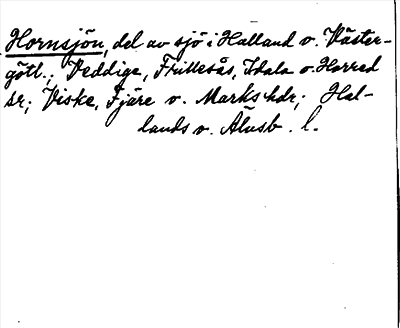 Hornsjön, del av sjö i Halland o. Väster-
götl.; Veddige, Frillesås, Idala o. Horred
sr; Viske, Fjäre o. Marks hdr; Hal-
lands o. Älvsb. l.